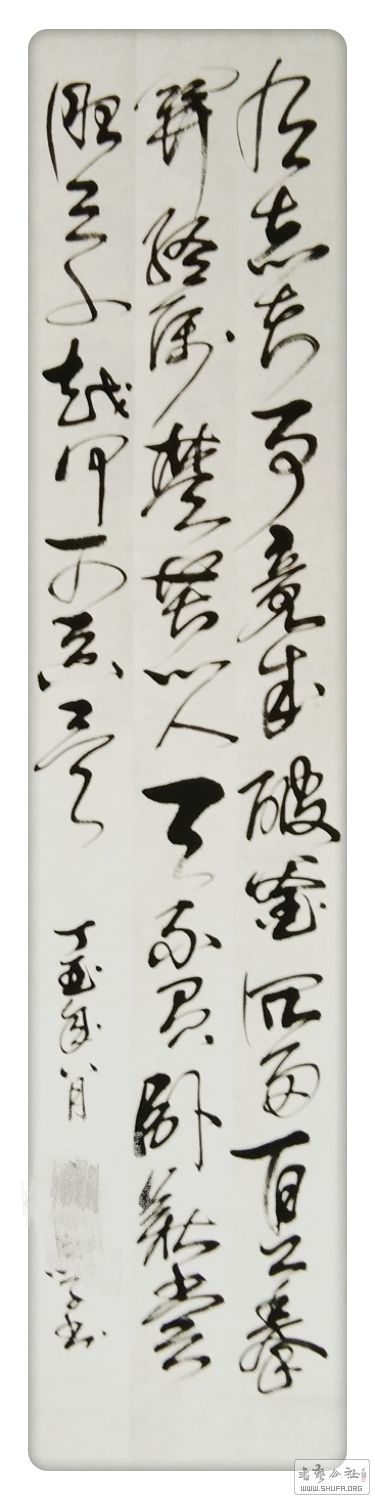 有志者事竟成破釜沉舟百二秦
關終屬楚苦心人天不負臥薪嘗
膽三千越甲可吞吳
丁酉年八月
書藝公社
WWW.SHUFA.ORG